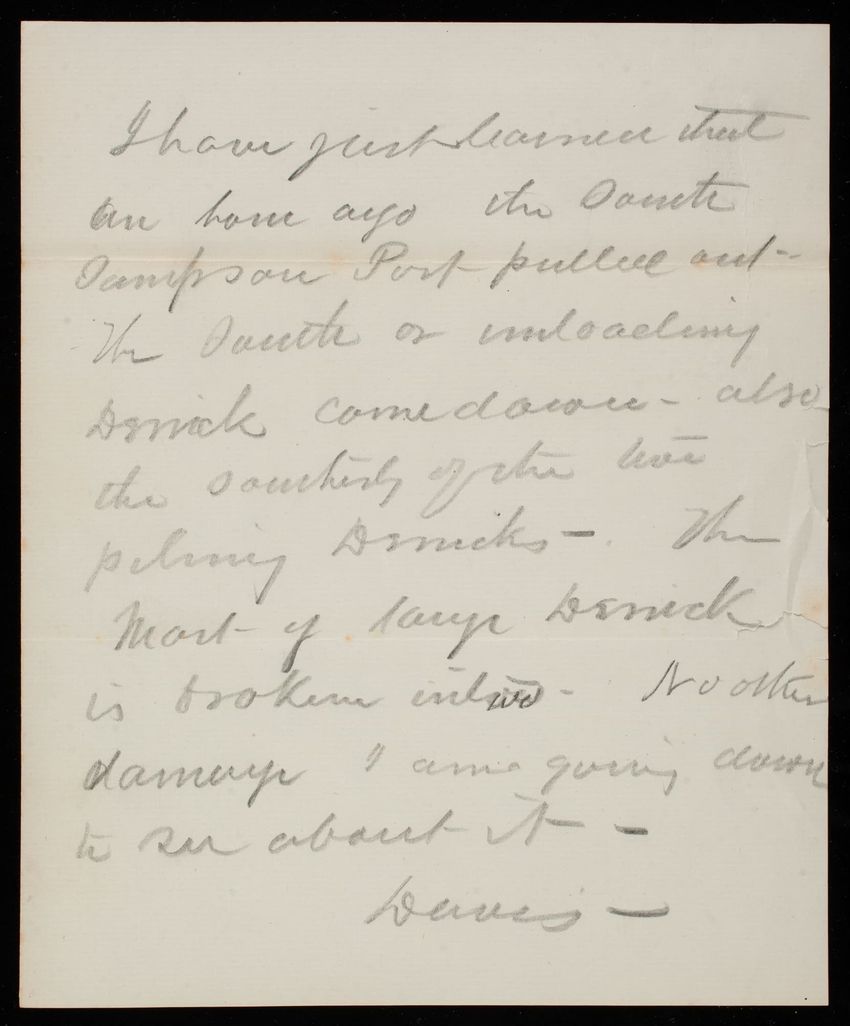 I have just learned that
an hour ago the South
Sampson Post pulled out -
The South or unloading
Derrick came down - also
the southerly of the two
piling Derricks -. The
Mast of large Derrick
is broken in two - No other
damage I am going down
to see about it -
Davis -